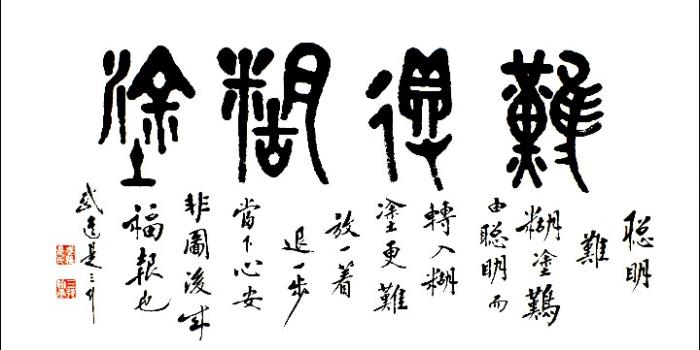 難得糊塗
聰明
難
糊塗難
由聰明而
轉入糊
塗更難
放一着
退一步
當下心安
非圖後來
福報也